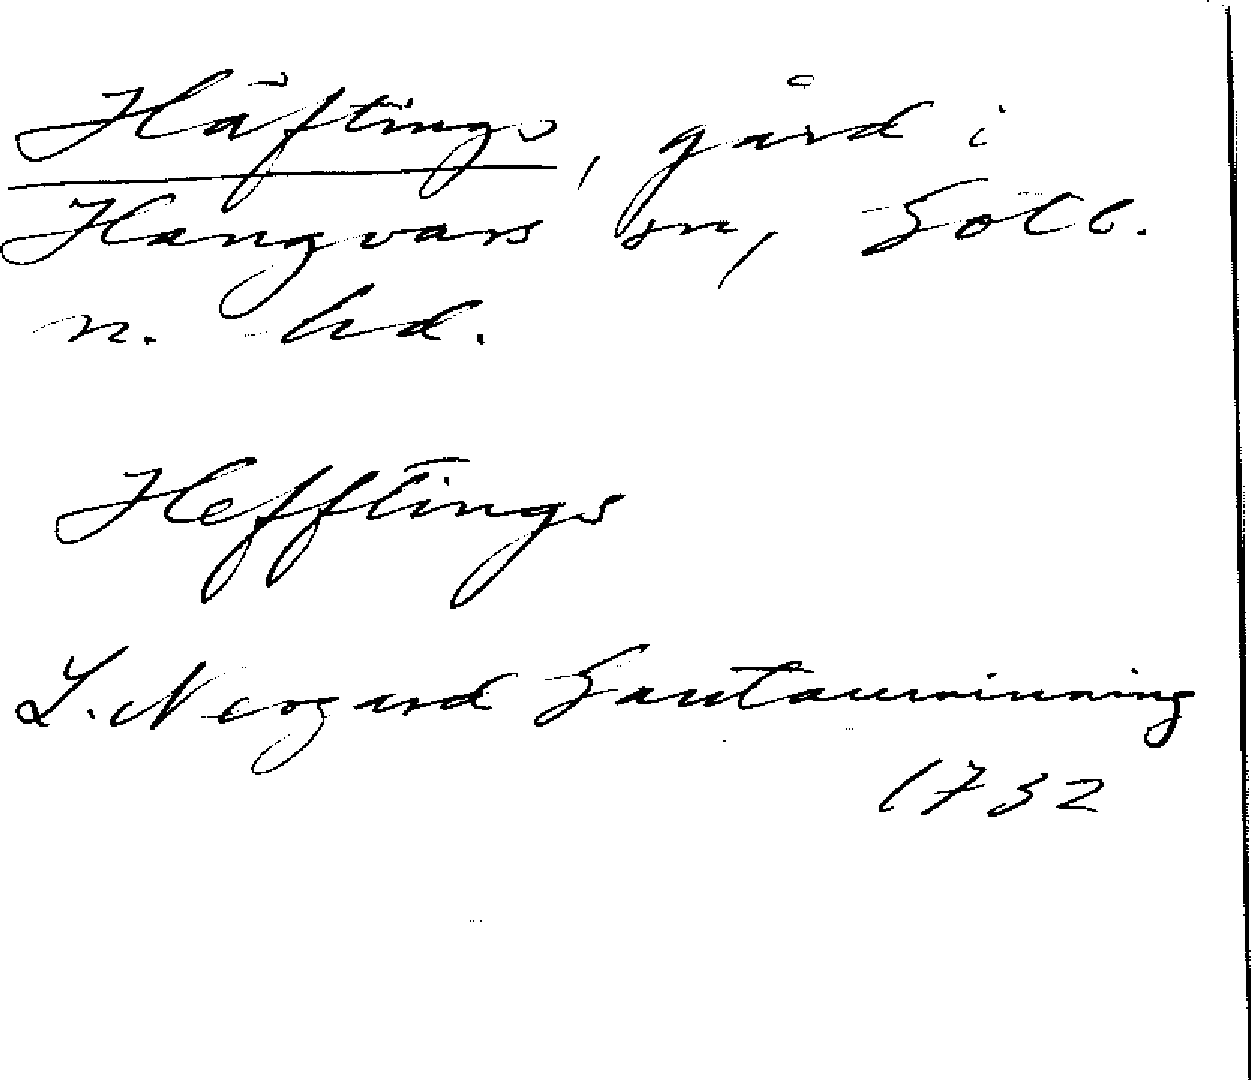 Häftings, gård i
Hangvars sn, Gotl.
n. hd.
Hefftings
L. Neogard Gautauminning
1732